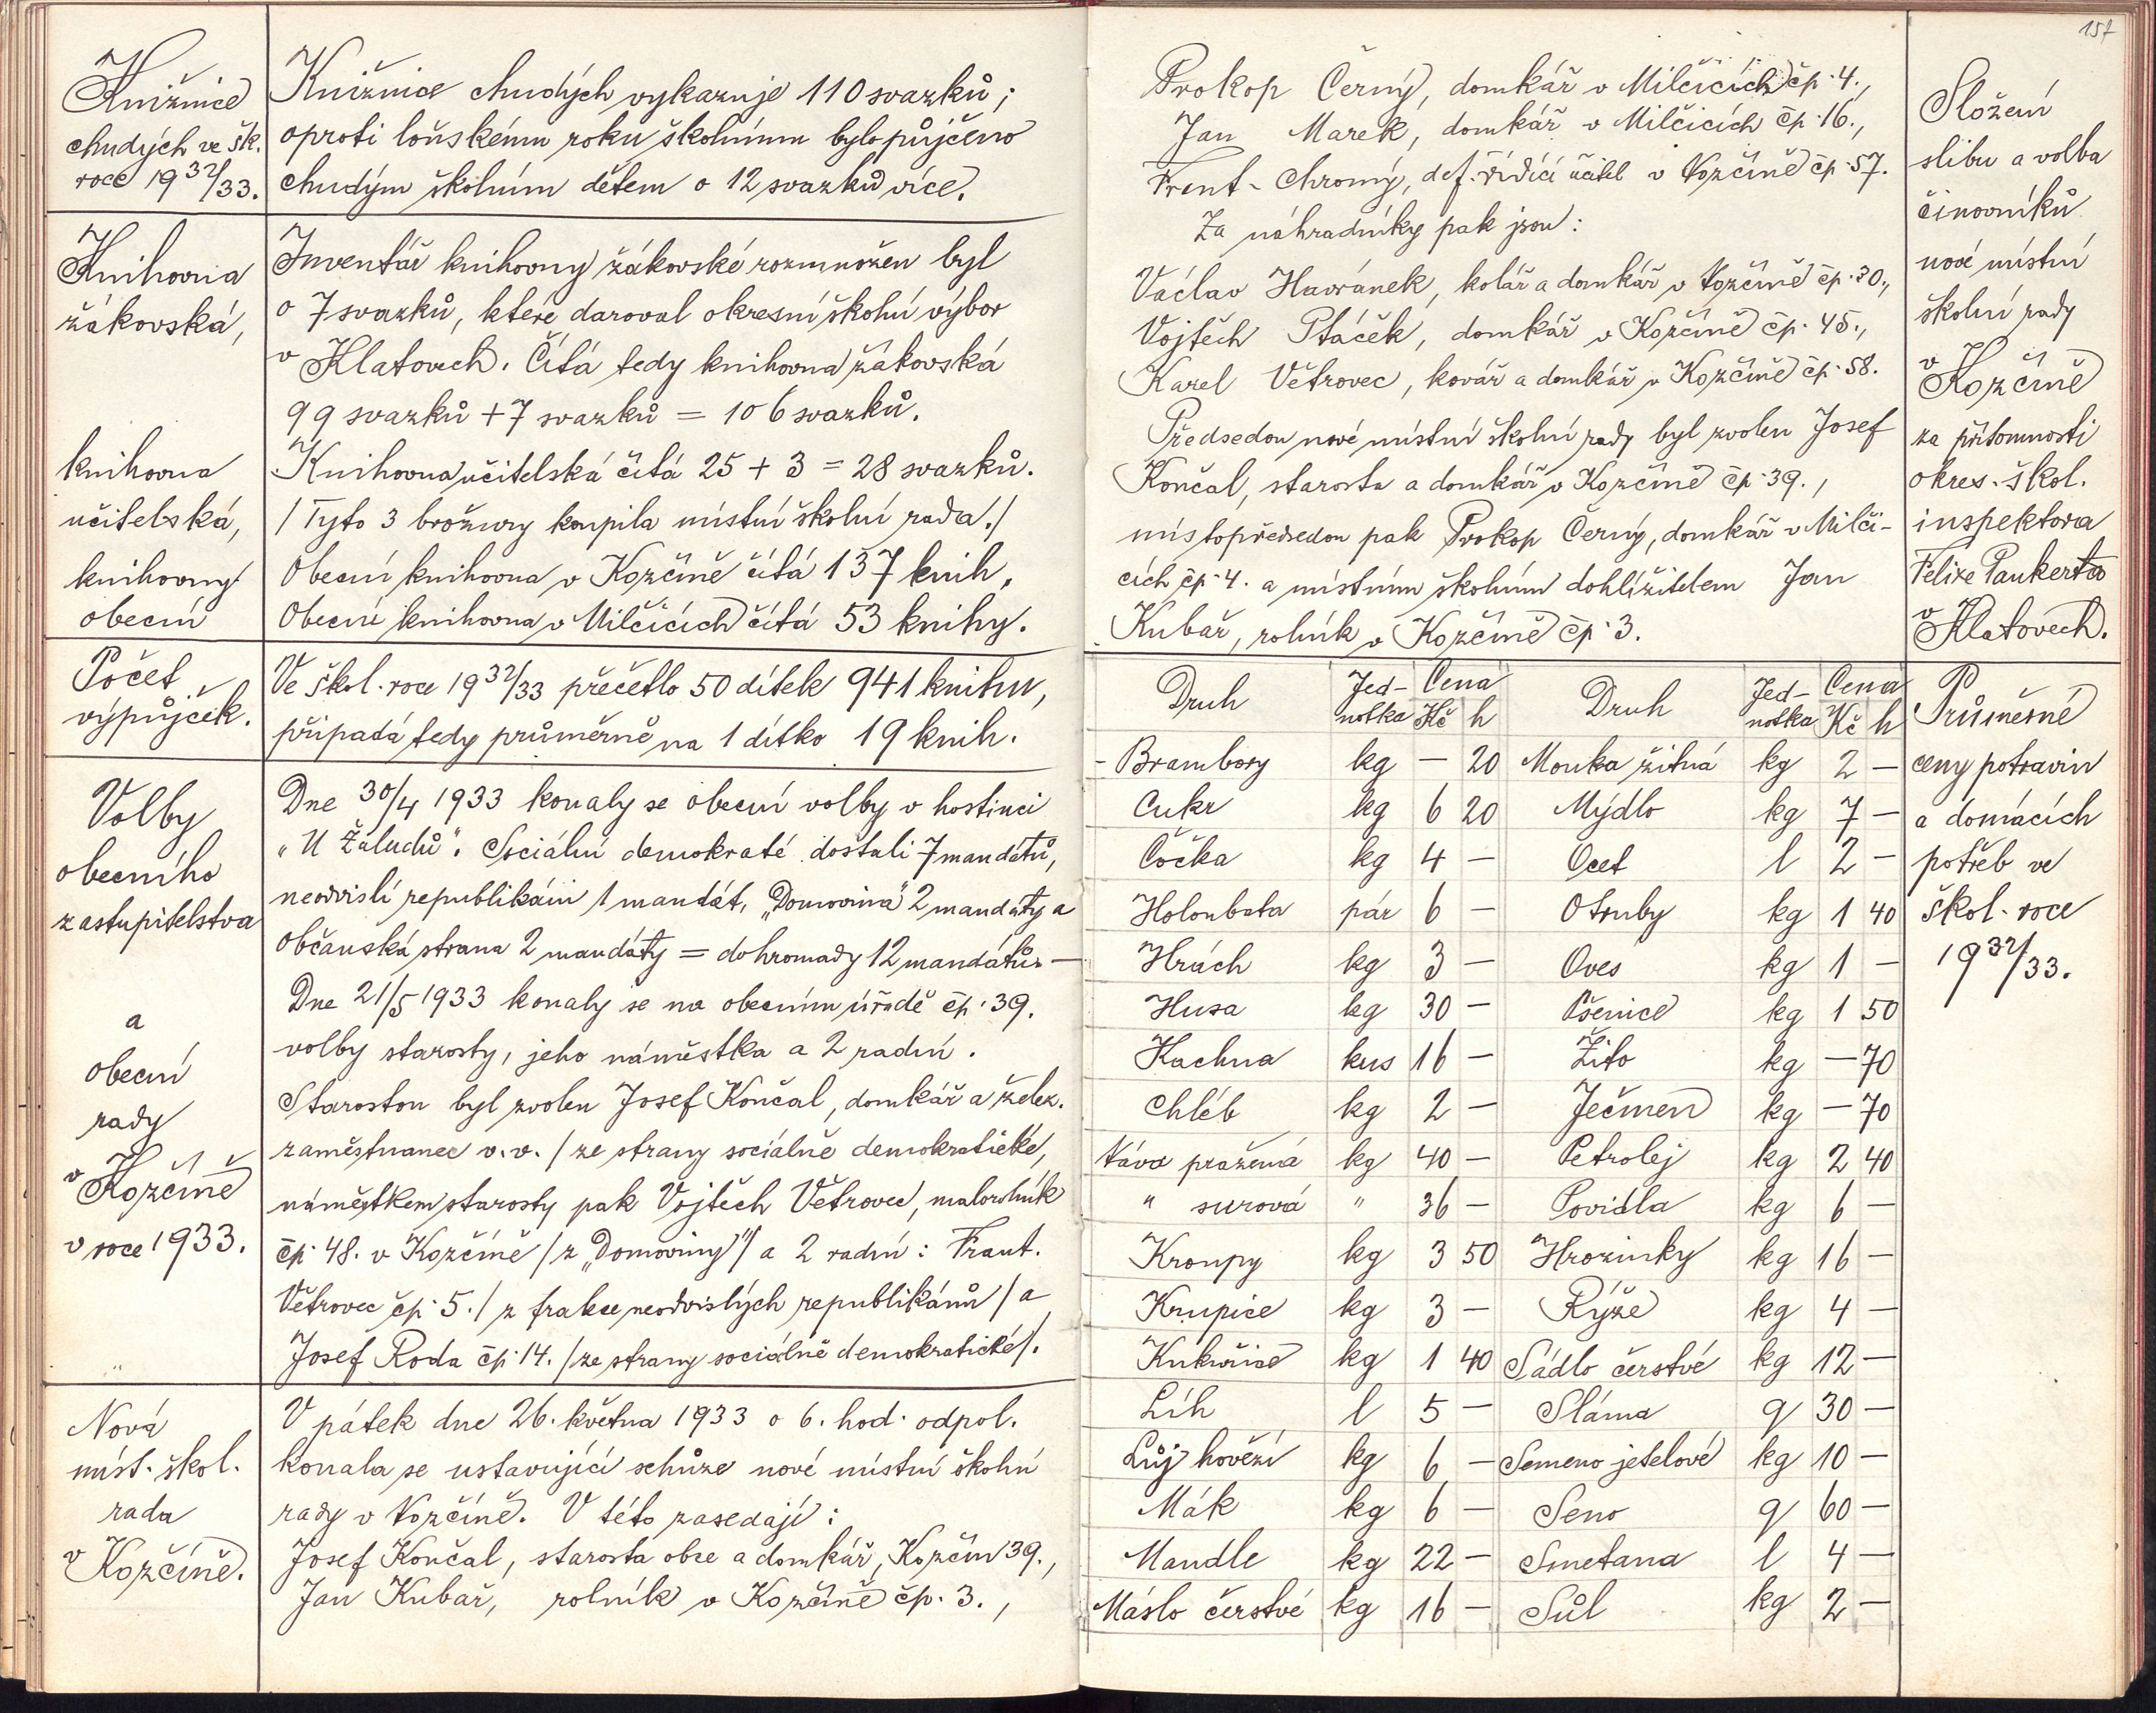 Knižnice
chudých ve šk.
roce 1932/33.
Knižnice chudých vykazuje 110 svazků;
oproti loňskému roku školnímu bylo půjčeno
chudým školním dětem o 12 svazků více.
Knihovna
žákovská,
Inventář knihovny žákovské rozmnožen byl
o 7 svazků, které daroval okresní školní výbor
v Klatovech. Čítá tedy knihovna žákovská
99 svazků + 7 svazků = 106 svazků.
knihovna
učitelská,
Knihovna učitelská čítá 25 + 3 = 28 svazků.
/Tyto 3 brožury koupila místní školní rada./
knihovny
obecní
Obecní knihovna v Kozčíně čítá 137 knih,
Obecní knihovna v Milčicích čítá 53 knihy.
Počet
výpůjček.
Ve škol. roce 1932/33 přečetlo 50 dítek 941 knihu,
připadá tedy průměrně na 1 dítko 19 knih.
Volby
obecního
zastupitelstva
a
obecní
rady
v Kozčíně
v roce 1933.
Dne 30/4 1933 konaly se obecní volby v hostinci
„U Žaludů". Sociální demokraté dostali 7 mandátů,
neodvislí republikáni 1 mandát, „Domovina" 2 mandáty a
Občanská strana 2 mandáty = dohromady 12 mandátů. —
Dne 21/5 1933 konaly se na obecním úřadě čp. 39.
volby starosty, jeho náměstka a 2 radní.
Starostou byl zvolen Josef Končal, domkář a želez.
zaměstnanec v.v. /ze strany sociálně demokratické,
náměstkem starosty pak Vojtěch Větrovec, malorolník
čp. 48. v Kozčíně /z „Domoviny"/ a 2 radní: Frant.
Větrovec čp. 5. /z frakce neodvislých republikánů/ a
Josef Roda čp. 14. /ze strany sociálně demokratické/.
Nová
míst. škol.
rada
v Kozčíně.
V pátek dne 26. května 1933 o 6. hod. odpol.
konala se ustavující schůze nové místní školní
rady v Kozčíně. V této zasedají:
Josef Končal, starosta obce a domkář, Kozčín 39.,
Jan Kubař, rolník v Kozčíně čp. 3.,
157
Prokop Černý, domkář v Milčicích čp. 4.,
Jan Marek, domkář v Milčicích čp. 16.,
Frent. Chromý, def. řídící učitel v Kozčíně čp. 57.
Za náhradníky pak jsou:
Václav Havránek, kolář a domkář v Kozčíně čp. 30.,
Vojtěch Ptáček, domkář v Kozčíně čp. 45.,
Karel Větrovec, kovář a domkář v Kozčíně čp. 58.
Předsedou nové místní školní rady byl zvolen Josef
Končal, starosta a domkář v Kozčíně čp. 39.,
místopředsedou pak Prokop Černý, domkář v Milči-
cích čp. 4. a místním školním dohlížitelem Jan
Kubař, rolník v Kozčíně čp. 3.
Složení
slibu a volba
činovníků
nové místní
školní rady
v Kozčíně
za přítomnosti
okres. škol.
inspektora
Felixe Paukerta
v Klatovech.
Druh Jed- Cena Druh Jed- Cena
notka Kč h notka Kč h
Brambory kg — 20 Mouka žitná kg 2 —
Cukr kg 6 20 Mýdlo kg 7 —
Čočka kg 4 — Ocet l 2 —
Holoubata pár 6 — Otruby kg 1 40
Hrách kg 3 — Oves kg 1 —
Husa kg 30 — Pšenice kg 1 50
Kachna kus 16 — Žito kg — 70
Chléb kg 2 — Ječmen kg — 70
Káva pražená kg 40 — Petrolej kg 2 40
" surová " 36 — Povidla kg 6 —
Kroupy kg 3 50 Hrozinky kg 16 —
Krupice kg 3 — Rýže kg 4 —
Kukuřice kg 1 40 Sádlo čerstvé kg 12 —
Líh l 5 — Sláma q 30 —
Lůj hovězí kg 6 — Semeno jetelové kg 10 —
Mák kg 6 — Seno q 60 —
Mandle kg 22 — Smetana l 4 —
Máslo čerstvé kg 16 — Sůl kg 2 —
Průměrné
ceny potravin
a domácích
potřeb ve
škol. roce
1932/33.